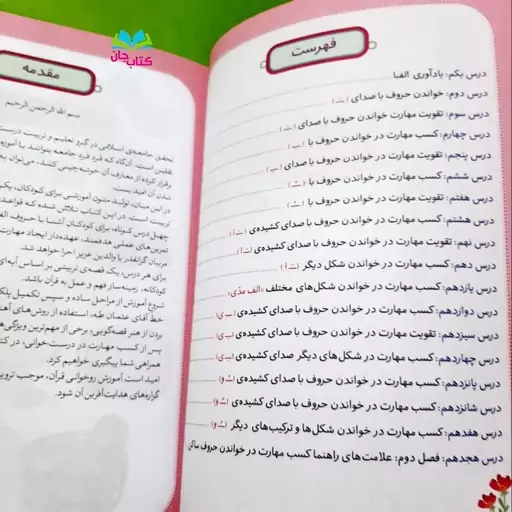 فهرست
درس یکم: یادآوری الفبا
درس دوم: خواندن حروف با صدای (ـَـ)
درس سوم: تقویت مهارت خواندن حروف با صدای (ـَـ)
درس چهارم: کسب مهارت در خواندن حروف با (ـِـ)
درس پنجم: تقویت مهارت در خواندن حروف با صدای (ـِـ)
درس ششم: کسب مهارت در خواندن حروف با (ـُـ)
درس هفتم: تقویت مهارت در خواندن حروف با (ـُـ)
درس هشتم: کسب مهارت در خواندن حروف با صدای کشیده‌ی (ـَـ ا)
درس نهم: تقویت مهارت در خواندن حروف با صدای کشیده‌ی (ـَـ ا)
درس دهم: کسب مهارت در خواندن حروف با شکل دیگر (ـَـ ا)
درس یازدهم: کسب مهارت در خواندن شکل‌های مختلف «الف مدّی»
درس دوازدهم: کسب مهارت در خواندن حروف با صدای کشیده‌ی (ـِـ ی)
درس سیزدهم: تقویت مهارت در خواندن حروف با صدای کشیده‌ی (ـِـ ی)
درس چهاردهم: کسب مهارت در شکل‌های دیگر صدای کشیده‌ی (ـِـ ی)
درس پانزدهم: کسب مهارت در خواندن حروف با صدای کشیده‌ی (ـُـ و)
درس شانزدهم: کسب مهارت در خواندن حروف با صدای کشیده‌ی (ـُـ و)
درس هفدهم: کسب مهارت در خواندن شکل‌ها و ترکیب‌های دیگر (ـُـ و)
درس هجدهم: فصل دوم: علامت‌های راهنما کسب مهارت در خواندن حروف ساکن
کتاب جان
مقدمه
بسم الله الرحمن الرحیم
تحقق جامعه‌ی اسلامی در گرو تعلیم و تربیت درست
نفیس است. آنگاه که فرد فرد جامعه بتوانند با آموزه
وقرار کرده از معارف آن خوشه‌چینی کنند، می‌توان به
شدن آن امید بست.
در این میان، تولید متون آموزشی برای کودکان، یکی
تربیت است. در این کتاب تلاش شده که قواعد
چهل درس کوتاه، برای کودکان آشنا با حروف الف
تمرین‌های عملی هدفمند، عهده‌دار ایجاد مهارت
مربیان گرانقدر یا والدین عزیز اجرا خواهد شد.
برای هر درس، یک قصه‌ی تربیتی بر اساس آیه‌ای
کودکانه، زمینه‌ساز فهم و عمل به قرآن باشد.
شروع آموزش از مراحل ساده و سپس تکمیل پلک
خط آقای عثمان طه، استفاده از روش‌های آهن
بردن از هنر قصه‌گویی، برخی از مهم‌ترین ویژگی‌ها
پس از کسب مهارت در درست‌خوانی، در کتا
همراهی شما پیگیری خواهیم کرد.
امید است آموزش روخوانی قرآن، موجب تروی
گزاره‌های هدایت‌آفرین آن شود.